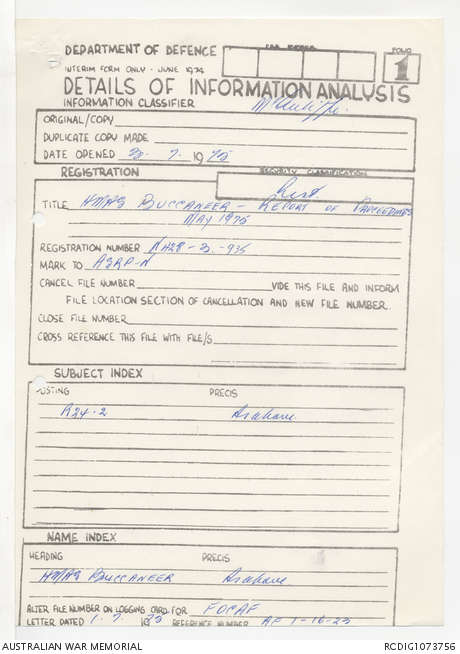 DEPARTMENT OF DEFENCE
FOLIO
INTERIM FORM ONLY - JUNE 1974
1
DETAILS OF INFORMATION ANALYSIS
INFORMATION CLASSIFIER
ORIGINAL/COPY
DUPLICATE COPY MADE
DATE OPENED 3. 7. 1975
REGISTRATION
SECURITY CLASSIFICATION
Rest
TITLE HMAS BUCCANEER - REPORT OF PROCEEDINGS
MAY 1975
REGISTRATION NUMBER N428-3-935
MARK TO ASRP-N
CANCEL FILE NUMBER VIDE THIS FILE AND INFORM
FILE LOCATION SECTION OF CANCELLATION AND NEW FILE NUMBER.
CLOSE FILE NUMBER
CROSS REFERENCE THIS FILE WITH FILE/S
SUBJECT INDEX
POSTING PRECIS
R24-2 As above
NAME INDEX
HEADING PRECIS
HMAS BUCCANEER As above
ALTER FILE NUMBER ON LOGGING CARD FOR FOCAF
LETTER DATED 1. 7. 1975 REFERENCE NUMBER AF 1-16-23
AUSTRALIAN WAR MEMORIAL
RCDIG1073756